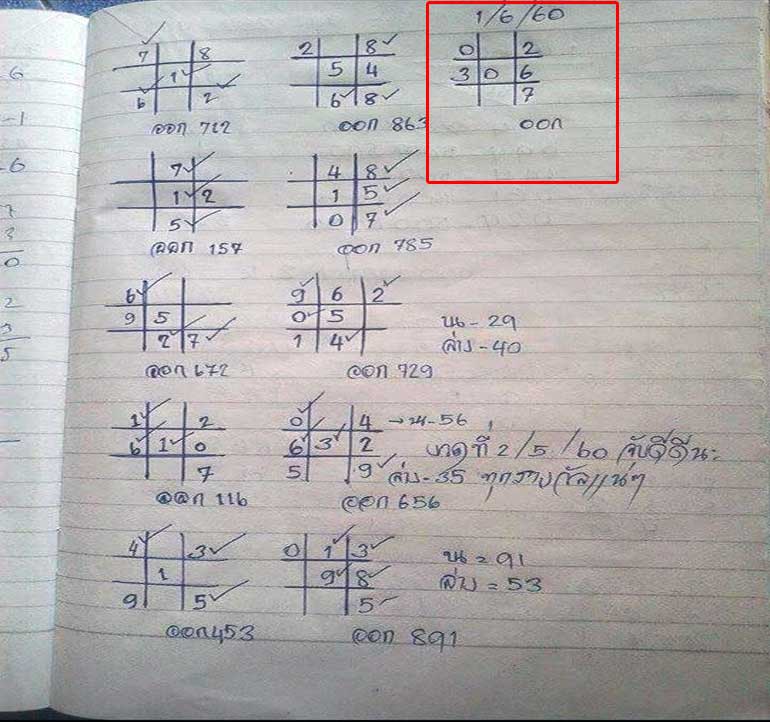 1/6/60
7 8
1
6 2
ออก 712
2 8
5 4
6 8
ออก 863
0 2
3 0 6
7
ออก
7
1 2
5
ออก 157
4 8
1 5
0 7
ออก 785
6
9 5
2 7
ออก 672
9 6 2
0 5
1 4
ออก 729
บน - 29
ล่าง - 40
1 2
6 1 0
7
ออก 116
0 4 → บน - 56
6 3 2
5 9 ล่าง - 35 ทุกรางวัลแน่ๆ
ออก 656
งวดที่ 2/5/60 จับดีดีนะ
4 3
1
9 5
ออก 453
0 1 3
9 8
5
ออก 891
บน = 91
ล่าง = 53
6
-1
-6
7
3
0
2
3
5